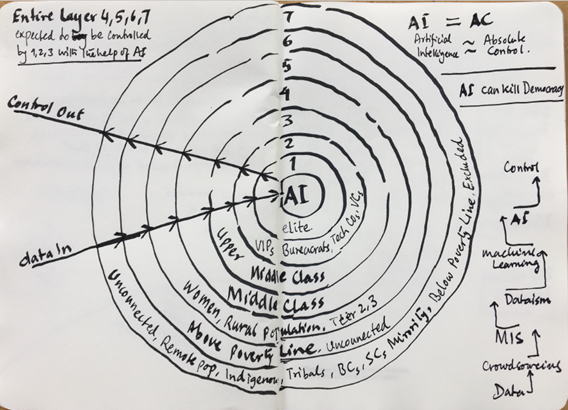 Entire Layer 4,5,6,7
expected to be controlled
by 1,2,3 with the help of AI
AI = AC
Artificial ~ Absolute
Intelligence ~ Control.
AI can kill Democracy
Control Out
data In
7
6
5
4
3
2
1
AI
elite
VIPs, Bureaucrats, Tech Cos, VCs
Upper
Middle Class
Middle Class
Women, Rural Population, Tier 2,3
Above Poverty Line, Unconnected
Unconnected, Remote pop, Indigenous, Tribals, BCs, SCs, Minority, Below Poverty Line, Excluded
Control
AI
machine
Learning
Dataism
MIS
Crowdsourcing
Data